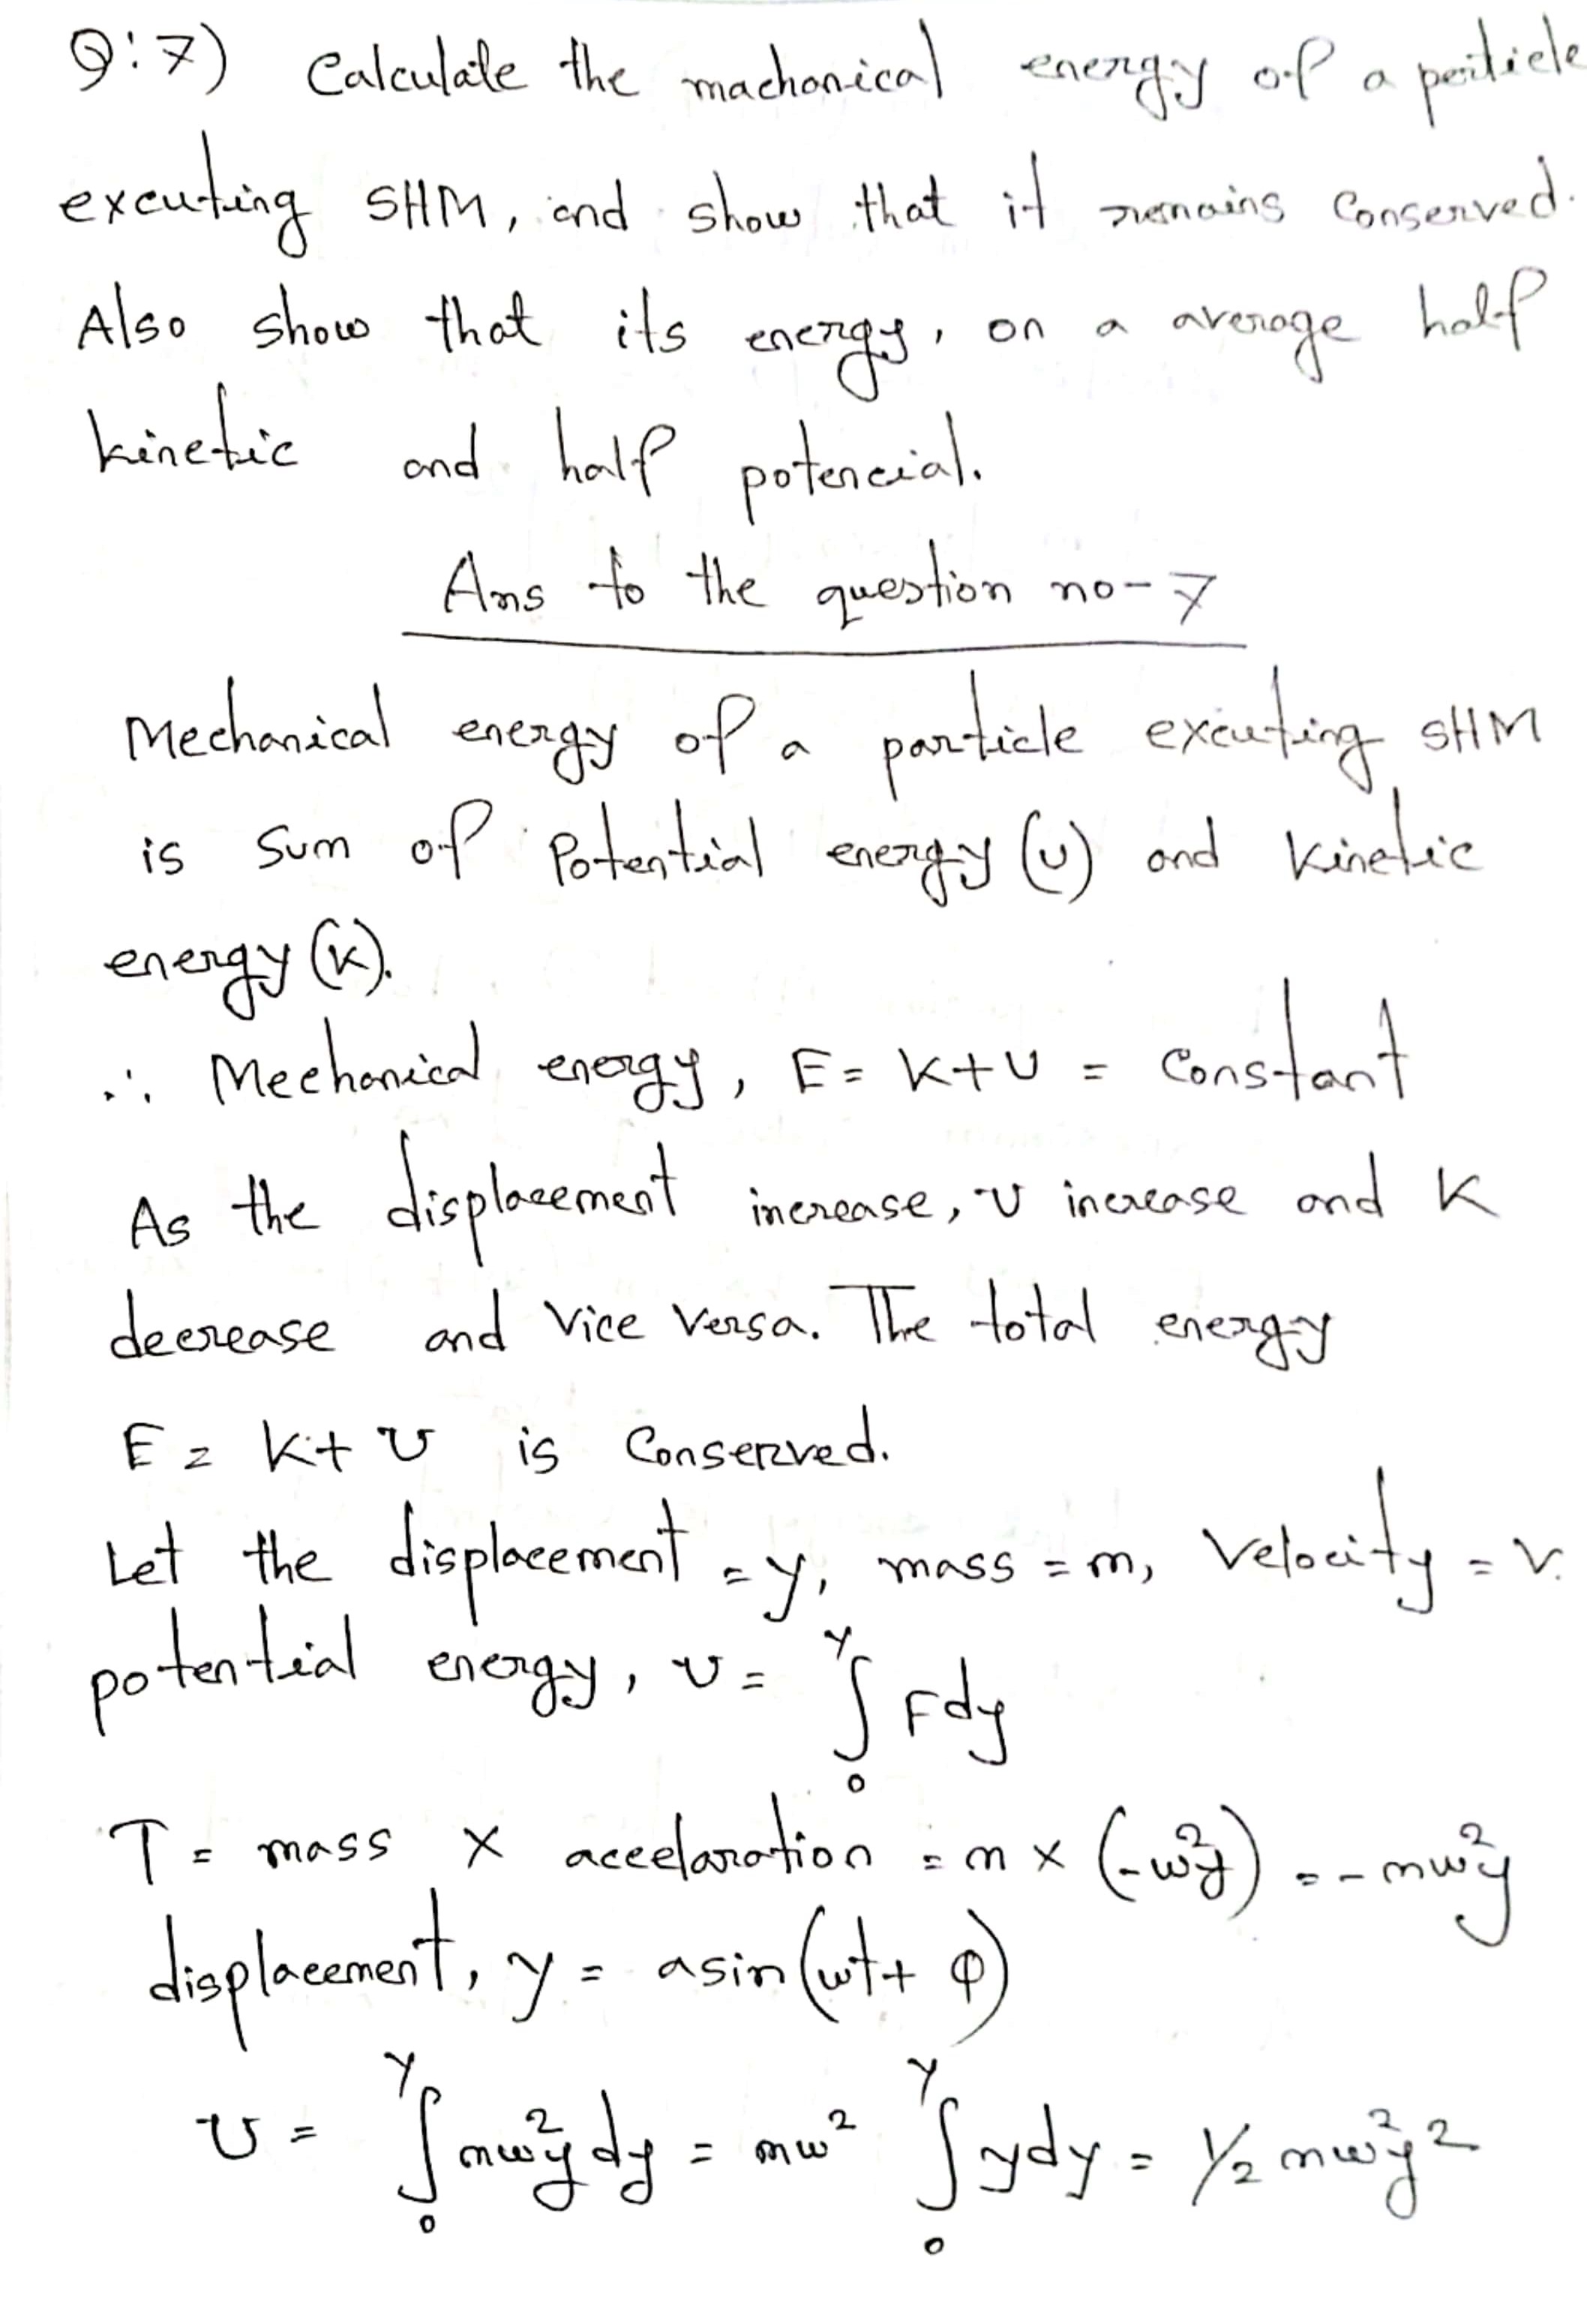 Q:7) Calculate the machonical energy of a perticle
excuting SHM, and show that it remains Conserved.
Also show that its energy, on a average half
kinetic and half potencial.
Ans to the question no-7
Mechanical energy of a particle excuting SHM
is sum of Potential energy (U) and Kinetic
energy (K).
∴ Mechanical energy, E = K+U = Constant
As the displacement increase, U increase and K
decrease and Vice Versa. The total energy
E = K+U is Conserved.
Let the displacement = y, mass = m, Velocity = v.
potential energy, U = ∫₀ʸ Fdy
T = mass × accelaration = m × (-ω²y) = - mω²y
displacement, y = asin(ωt+ φ)
U = ∫₀ʸ mω²y dy = mω² ∫₀ʸ ydy = 1/2 mω²y²